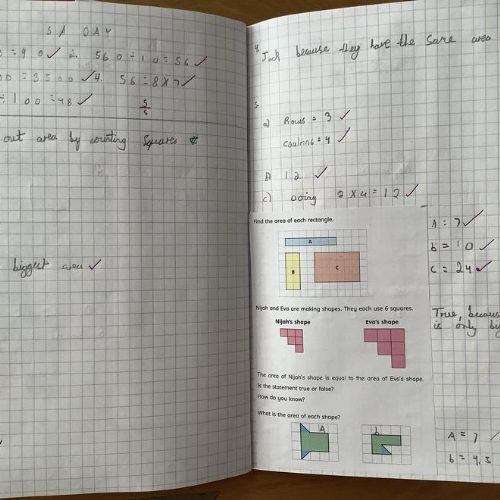 5 A DAY
÷ 9 0
2. 560 ÷ 10 = 56
00 = 3500
4. 56 = 8 x 7
÷ 100 = 48
5
5
out area by counting Squares
biggest area
4. Jack because they have the same area
5.
a) Rows = 3
coulmns = 4
b) 12
c) doing 3 x 4 = 12
Find the area of each rectangle.
A
B
C
A = 7
b = 10
c = 24
Nijah and Eva are making shapes. They each use 6 squares.
Nijah's shape
Eva's shape
True, because
is only by
The area of Nijah's shape is equal to the area of Eva's shape.
Is the statement true or false?
How do you know?
What is the area of each shape?
A
b
A = 7
b = 4.5